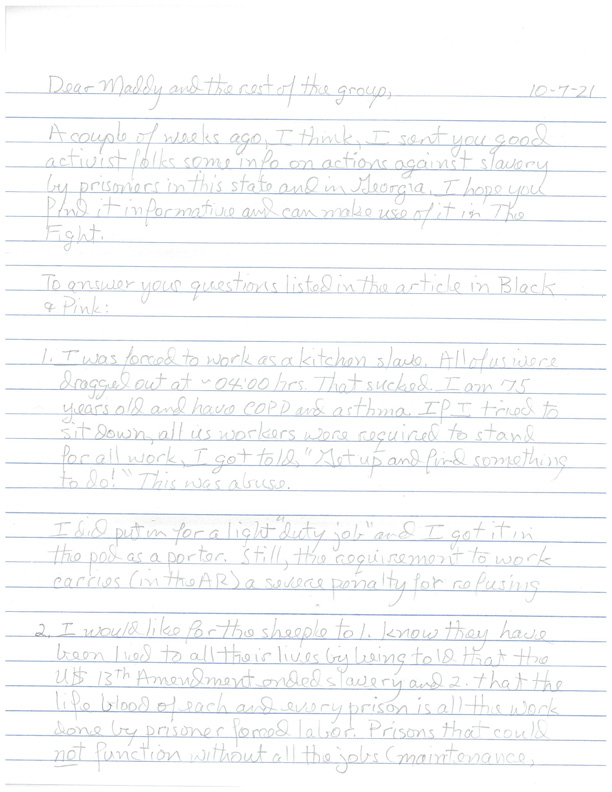 Dear Maddy and the rest of the group, 10-7-21
A couple of weeks ago, I think, I sent you good
activist folks some info on actions against slavery
by prisoners in this state and in Georgia. I hope you
find it informative and can make use of it in The
Fight.
To answer your questions listed in the article in Black
& Pink:
1. I was forced to work as a kitchen slave. All of us were
dragged out at ~04:00 hrs. That sucked. I am 75
years old and have COPD and asthma. If I tried to
sit down, all us workers were required to stand
for all work, I got told, "Get up and find something
to do!" This was abuse.
I did put in for a light "duty job" and I got it in
the pod as a porter. Still, the requirement to work
carries (in the AR) a severe penalty for refusing
2. I would like for the sheeple to 1. know they have
been lied to all their lives by being told that the
U$ 13th Amendment ended slavery and 2. that the
life blood of each and every prison is all this work
done by prisoner forced labor. Prisons that could
not function without all the jobs (maintenance,